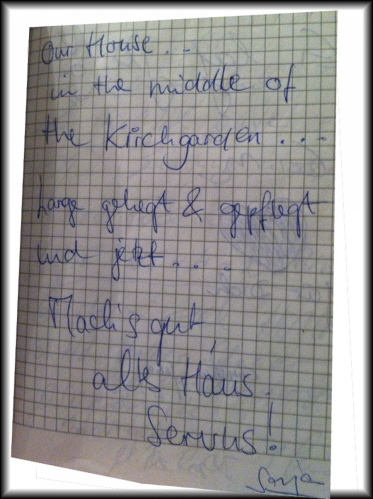 Our House...
in the middle of
the Kirchgarden....
Lange gehegt & gepflegt
und jetzt....
Mach's gut,
altes Haus.
Servus!
Sonja